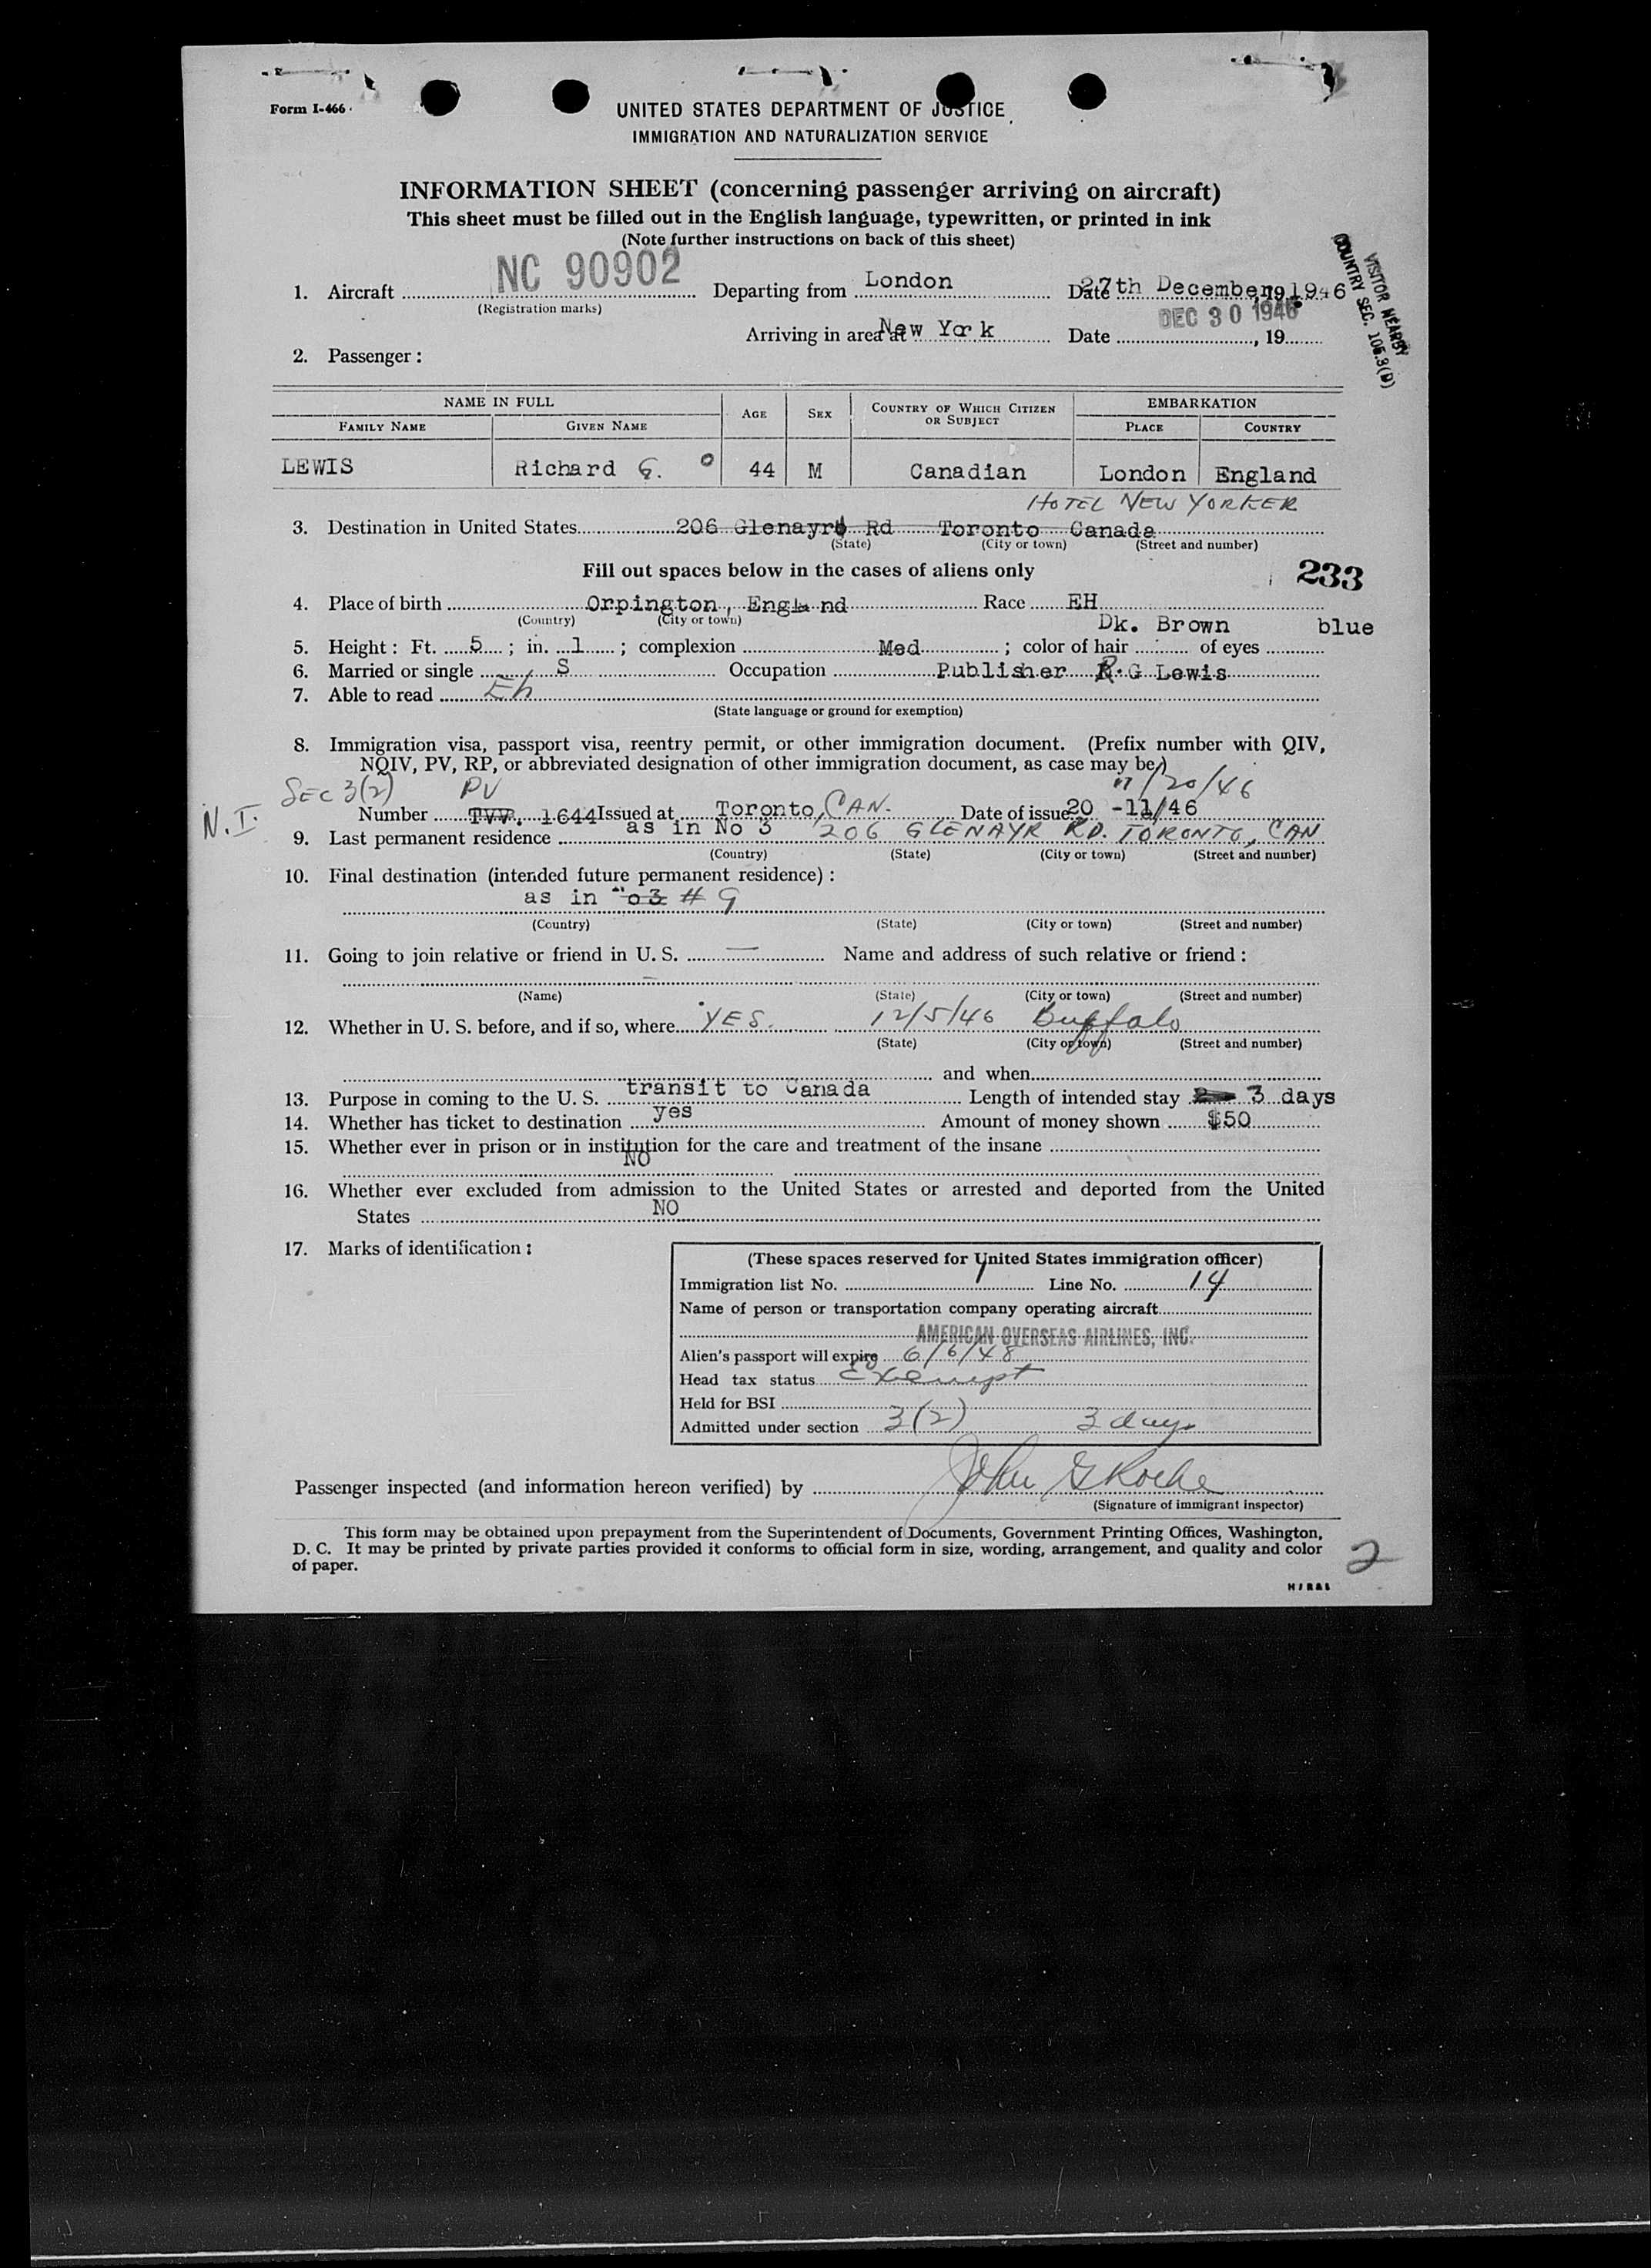 Form I-466
UNITED STATES DEPARTMENT OF JUSTICE
IMMIGRATION AND NATURALIZATION SERVICE
INFORMATION SHEET (concerning passenger arriving on aircraft)
This sheet must be filled out in the English language, typewritten, or printed in ink
(Note further instructions on back of this sheet)
VISITOR NEARBY
COUNTRY SEC.
1. Aircraft NC 90902 Departing from London Date 27th December, 19 1946
(Registration marks)
Arriving in area at New York Date DEC 30 1946, 19
2. Passenger:
NAME IN FULL AGE SEX COUNTRY OF WHICH CITIZEN OR SUBJECT EMBARKATION
FAMILY NAME GIVEN NAME PLACE COUNTRY
LEWIS Richard G. 44 M Canadian London England
HOTEL NEW YORKER
3. Destination in United States 206 Glenayr Rd Toronto Canada
(State) (City or town) (Street and number)
Fill out spaces below in the cases of aliens only 233
4. Place of birth Orpington, England Race EH
(Country) (City or town)
Dk. Brown blue
5. Height: Ft. 5; in. 1; complexion Med; color of hair of eyes
6. Married or single S Occupation Publisher R.G Lewis
7. Able to read Eh
(State language or ground for exemption)
8. Immigration visa, passport visa, reentry permit, or other immigration document. (Prefix number with QIV,
NQIV, PV, RP, or abbreviated designation of other immigration document, as case may be)
SEC 3(2) PV 11/20/46
N.I. Number TVV. 1644 Issued at Toronto, CAN. Date of issue 20 -11/46
9. Last permanent residence as in No 3 206 GLENAYR RD. TORONTO, CAN
(Country) (State) (City or town) (Street and number)
10. Final destination (intended future permanent residence):
as in # 9
(Country) (State) (City or town) (Street and number)
11. Going to join relative or friend in U. S. — Name and address of such relative or friend:
(Name) (State) (City or town) (Street and number)
12. Whether in U. S. before, and if so, where YES. 12/5/46 Buffalo
(State) (City or town) (Street and number)
and when
13. Purpose in coming to the U. S. transit to Canada Length of intended stay 3 days
14. Whether has ticket to destination yes Amount of money shown $50
15. Whether ever in prison or in institution for the care and treatment of the insane
NO
16. Whether ever excluded from admission to the United States or arrested and deported from the United
States NO
17. Marks of identification:
(These spaces reserved for United States immigration officer)
Immigration list No. 1 Line No. 14
Name of person or transportation company operating aircraft
AMERICAN OVERSEAS AIRLINES, INC.
Alien's passport will expire 6/6/48
Head tax status Exempt
Held for BSI
Admitted under section 3(2) 3 days
Passenger inspected (and information hereon verified) by John G Roche
(Signature of immigrant inspector)
This form may be obtained upon prepayment from the Superintendent of Documents, Government Printing Offices, Washington,
D. C. It may be printed by private parties provided it conforms to official form in size, wording, arrangement, and quality and color
of paper.
2